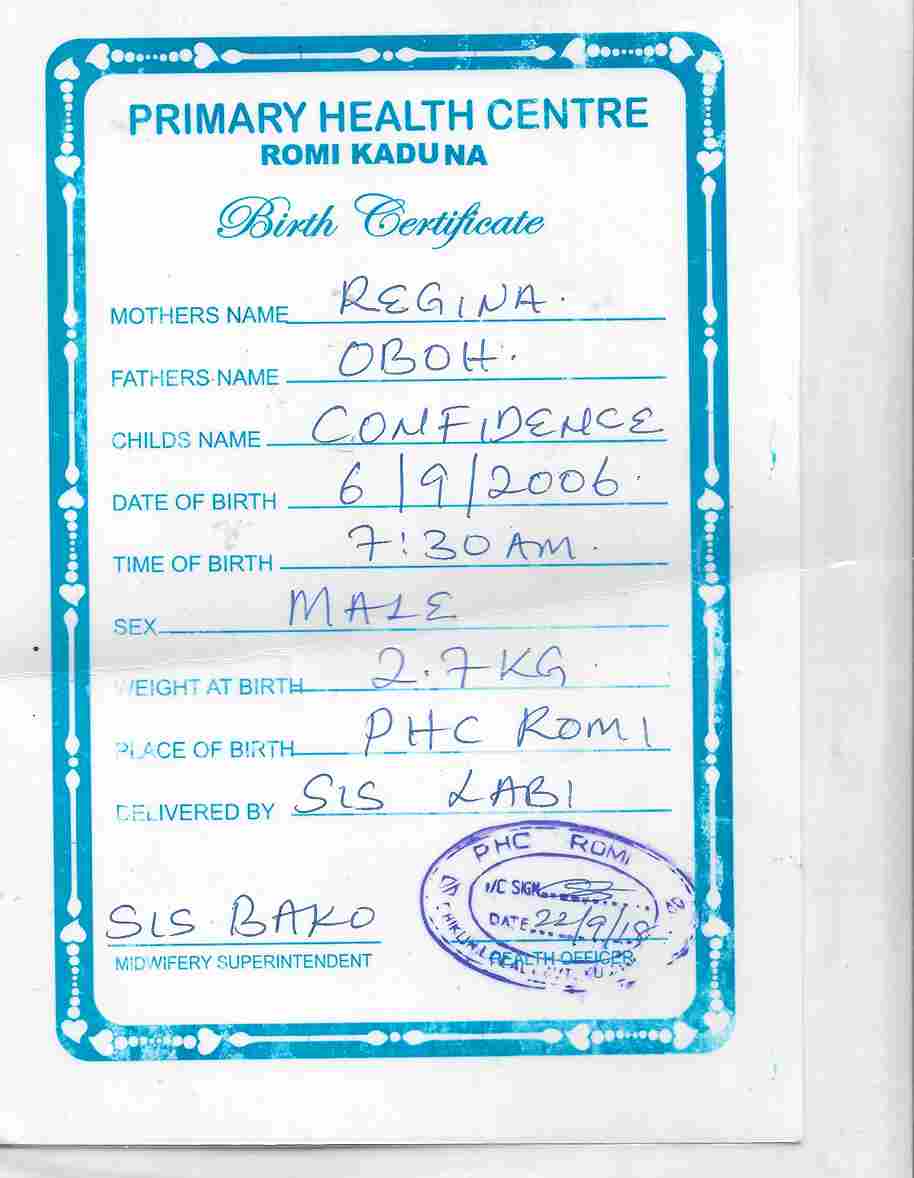 PRIMARY HEALTH CENTRE
ROMI KADUNA
Birth Certificate
MOTHERS NAME REGINA.
FATHERS NAME OBOH.
CHILDS NAME CONFIDENCE
DATE OF BIRTH 6/9/2006.
TIME OF BIRTH 7:30AM.
SEX MALE
WEIGHT AT BIRTH 2.7KG.
PLACE OF BIRTH PHC ROMI
DELIVERED BY SIS LABI
PHC ROMI
I/C SIGN
DATE 22/9/18
SIS. BAKO
MIDWIFERY SUPERINTENDENT
HEALTH OFFICER